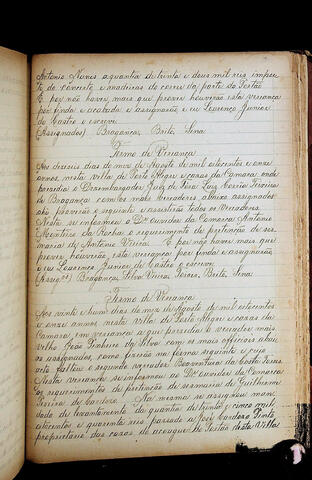 Antonio Nunes a quantia de trinta e dous mil reis impor
te do concerto e madeiras do curro da parte do Portão
E por não haver mais que prover houverão esta vereança
por finda e acabada e assignarão e eu Lourenço Junior
de Castro e escrevi
(Assignados) Bragança, Brito, Lima
Termo de Vereança
Aos deseseis dias do mez de Agosto de mil oitocentos e onze
annos nesta villa de Porto Alegre e casas da Camara onde
presidio o Desembargador Juiz de Fóra Luiz Corrêa Teixeira
de Bragança com os mais vereadores abaixo assignados
ahi proverão o seguinte e assistirão todos os vereadores
Nesta se informou o Dr Ouvidor da Comarca Antonio
Monteiro da Rocha o requerimento de pertenção de ses
maria de Antonio Vieira. E por não haver mais que
prover houverão esta vereança por finda e assignarão
e eu Lourenço Junior de Castro e escrevi
Bragança, Silva Vieira, Brito, Lima
Termo de Vereança
Aos vinte e hum dias do mez de Agosto de mil oitocentos
e onze annos nesta villa de Porto Alegre e casas da
Camara em vereança a que presidio o vereador mais
velho João Pinheiro da Silva com os mais officiaes abai
xo assignados, como fizerão na forma seguinte e cujo
acto faltou o segundo vereador Boaventura da Costa Torres
Nesta vereança se informou ao Dr Ouvidor da Comarca
os requerimentos de pertenção de sesmaria de Guilherme
Ferreira de Cardozo. Na mesma se assignou man
dado de levantamento da quantia de trinta e cinco mil
oitocentos e quarenta reis passado a José Cardozo Pinto
proprietario das casas do açougue do Portão desta Villa